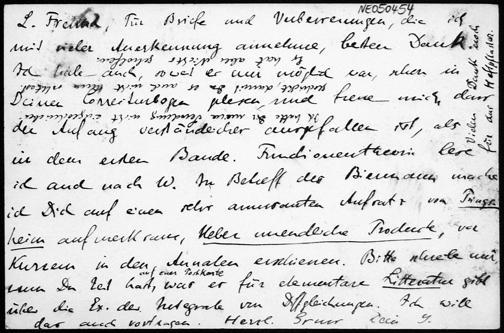 NE050454
L. Freund, Für Briefe und Verbesserungen, die ich
mit vieler Anerkennung annehme, besten Dank
Ich habe auch, soweit es mir möglich war, schon in
Deinen Correcturbogen gelesen, und freue mich, dass
der Anfang verständlicher ausgefallen ist, als
in dem ersten Bande. Functionentheorie lese
ich auch nach W. In Betreff des Biermann mache
ich Dich auf einen sehr amusanten Aufsatz von Prings-
heim aufmerksam, Ueber unendliche Producte, vor
Kurzem in den Annalen erschienen. Bitte schreibe mir,
wenn Du Zeit hast, auf einer Postkarte was es für elementare Litteratur gibt
über die Ex. der Integrale von Dffgleichungen. Ich will
das auch vortragen. Herzl. Gruss Dein
Vielen Dank auch
für das